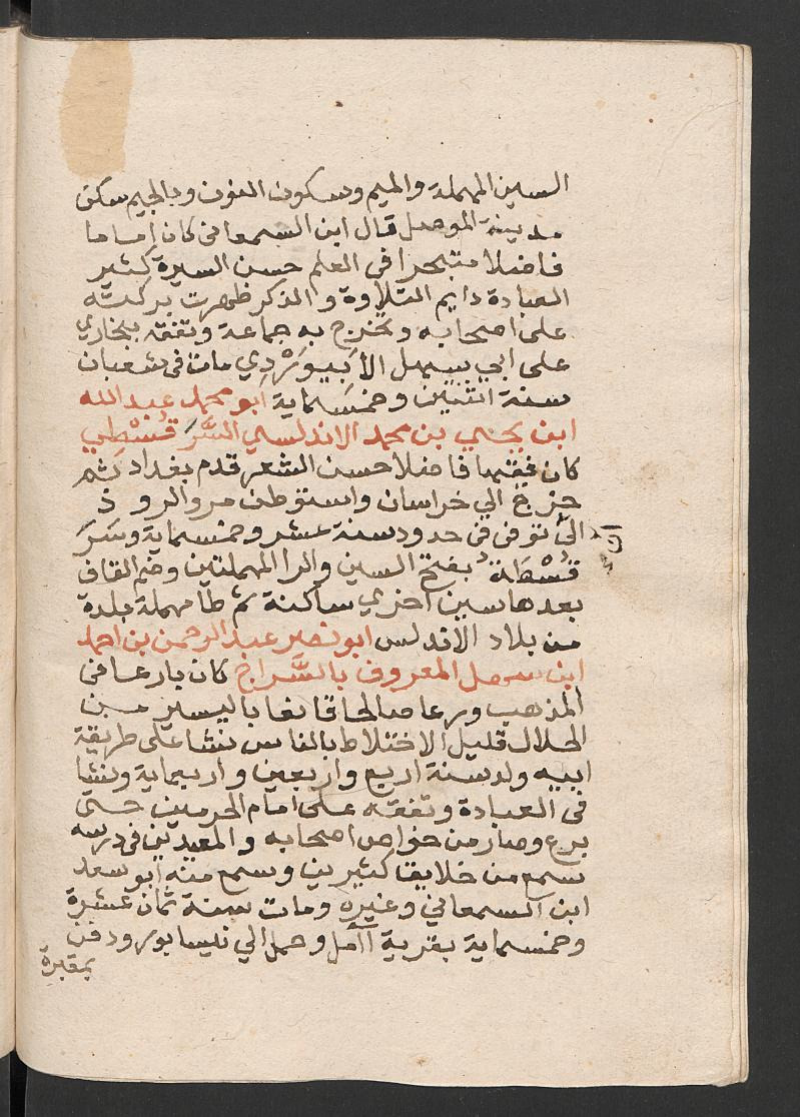 السين المهملة والميم وسكون النون وبالجيم سكن
مدينة الموصل قال ابن السمعاني كان إماما
فاضلا متبحرا في العلم حسن السيرة كثير
العبادة دايم التلاوة والذكر ظهرت بركته
على اصحابه وتخرج به جماعة وتفقه ببخاري
على ابي سهل الأَبيوَرْدِي مات في شعبان
سنة اثنين وخمسماية ابو محمد عبد الله
ابن يحيي بن محمد الاندلسي السَّرَقُسْطِي
كان فقيها فاضلا حسن الشعر قدم بغداد ثم
خرج الي خراسان واستوطن مرو الروذ
الى توفى في حدود سنة عشر وخمسماية وسَرَ
قُسْطَة بفتح السين والرا المهملتين وضم القاف
بعدها سين اخري ساكنة ثم طا مهملة بلدة
من بلاد الاندلس ابو نصر عبد الرحمن بن احمد
ابن سهل المعروف بالسَّراج كان بارعا في
المذهب ورعا صالحا قانعا باليسير من
الحلال قليل الاختلاط بالناس نشا على طريقة
ابيه ولد سنة اربع واربعين واربماية ونشا
في العبادة وتفقه على امام الحرمين حتى
برع وصار من خواص اصحابه والمعيدين في درسه
سمع من خلايقا كثيرين وسمع منه ابو سعد
ابن السمعاني وغيره ومات سنة ثمان عشرة
وخمسماية بقرية آمل وحمل الي نيسابور ودفن
بمقبرة